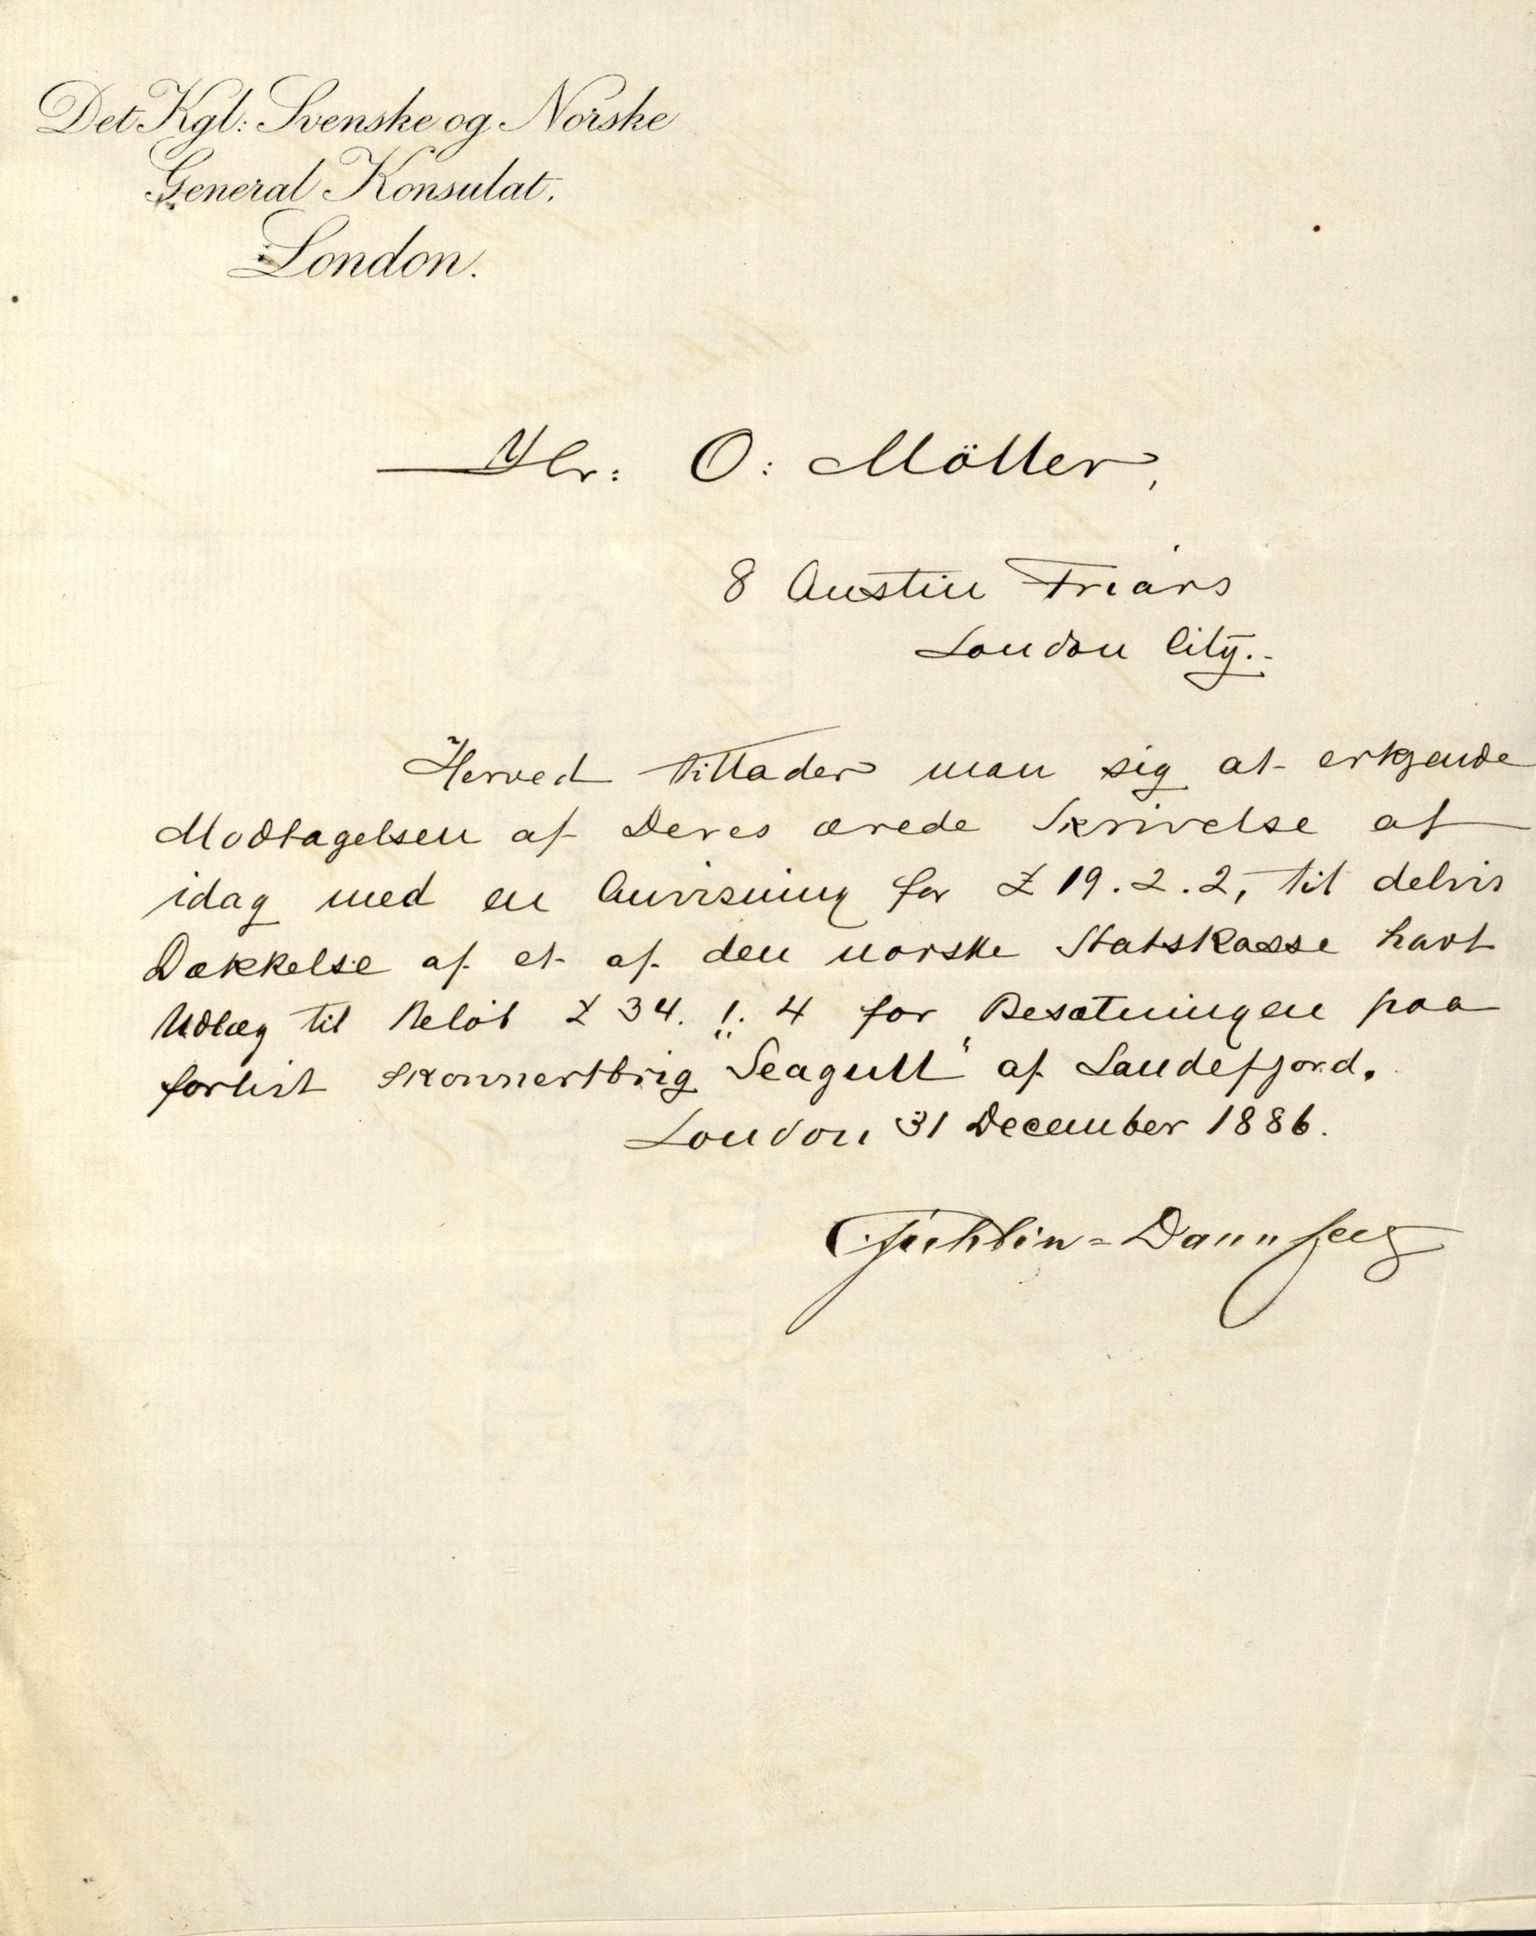 Det Kgl: Svenske og Norske
General Konsulat.
London.
Hr: O: Möller,
8 Austin Friars
London City.-
Herved tillader man sig at erkjende
Modtagelsen af Deres ærede Skrivelse af
idag med en Anvisning for £ 19.2.2, til delvis
Dækkelse af et af den norske Statskasse havt
Udlæg til Beløb £ 34.1.4 for Besætningen paa
forlist Skonnertbrig "Seagull" af Sandefjord.
London 31 December 1886.